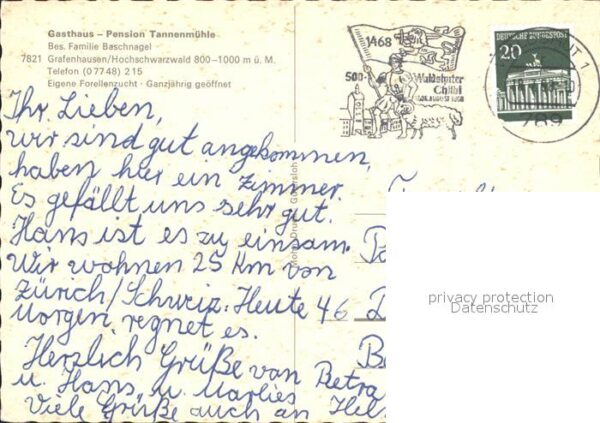 Gasthaus – Pension Tannenmühle
Bes. Familie Baschnagel
7821 Grafenhausen/Hochschwarzwald 800–1000 m ü. M.
Telefon (07748) 215
Eigene Forellenzucht · Ganzjährig geöffnet
Ihr Lieben,
wir sind gut angekommen,
haben hier ein Zimmer.
Es gefällt uns sehr gut.
Hans ist es zu einsam.
Wir wohnen 25 Km von
Zürich/Schweiz. Heute
Morgen regnet es.
Herzlich Grüße von Betra
u. Hans u. Marlies
Viele Grüße auch an
1468
500
Waldshuter
Chilbi
DEUTSCHE BUNDESPOST
20
789
46
privacy protection
Datenschutz